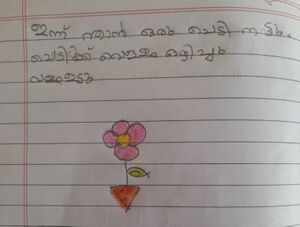 ഇന്ന് ഞാൻ ഒരു ചെടി നട്ടു.
ചെടിക്ക് വെള്ളം ഒഴിച്ചു
വളമിട്ടു